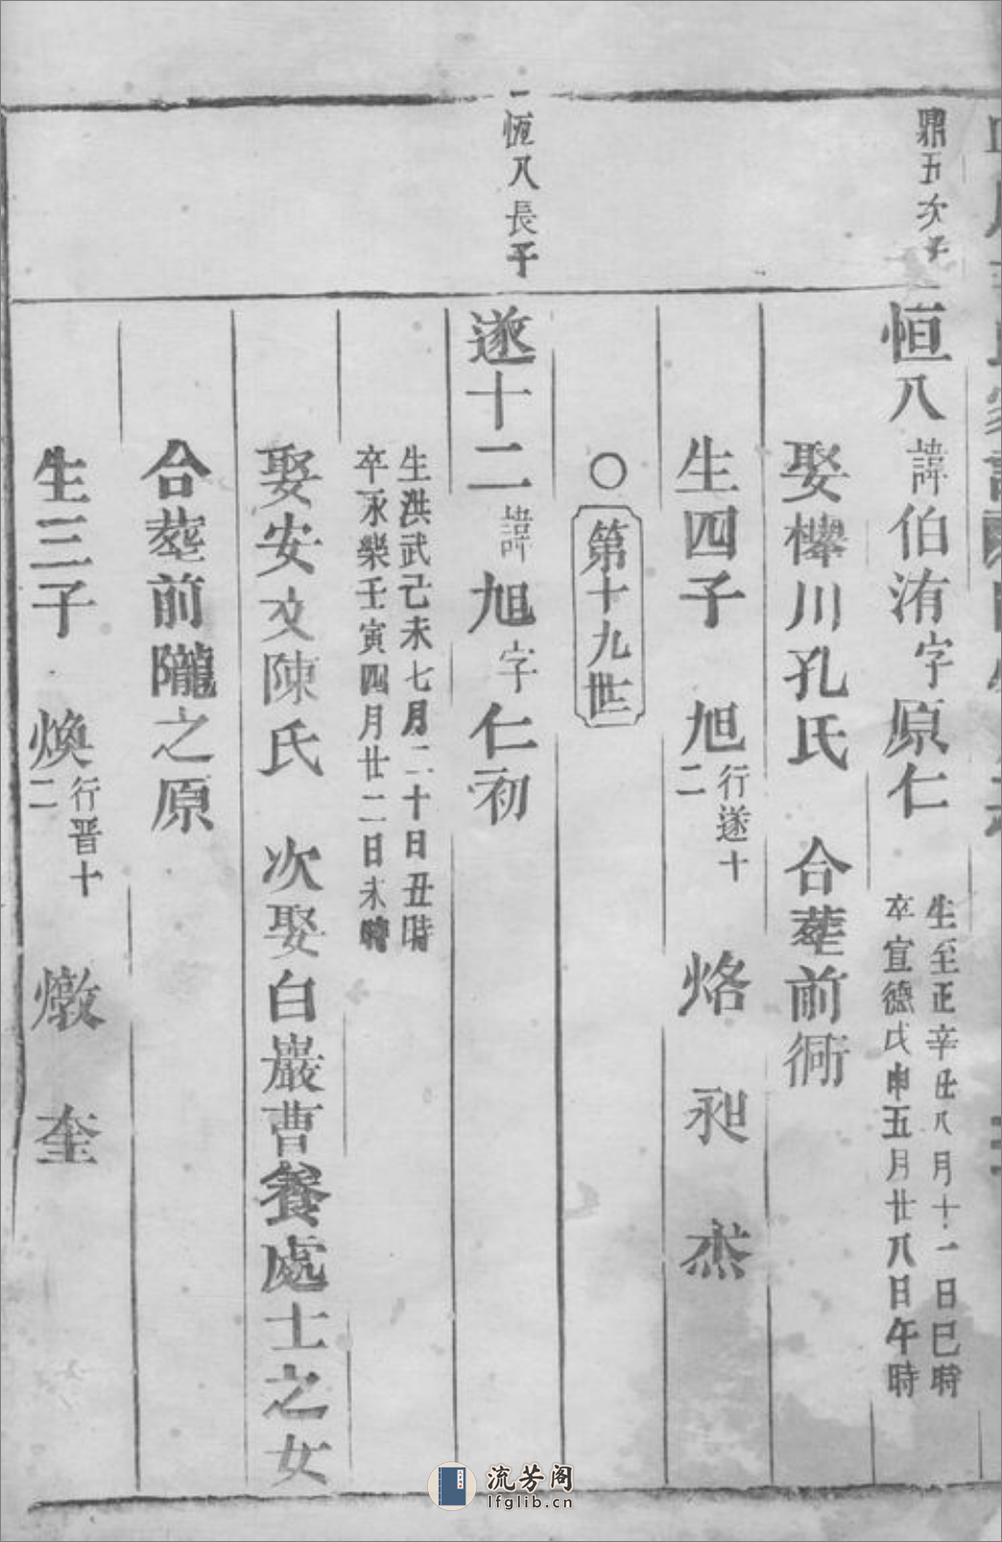 鼎五次子
恒八 諱伯洧字原仁 生至正辛丑八月十一日巳時
卒宣德戊申五月廿八日午時
娶櫸川孔氏 合葬前衕
生四子 旭行遂十二 烙 昶 烋
〇第十九世
恆八長子
遂十二 諱旭字仁初
生洪武己未七月二十日丑時
卒永樂壬寅四月廿二日未時
娶安文陳氏 次娶白巖曹養處士之女
合葬前隴之原
生三子 煥行晋十二 燉 奎
流芳阁
lfglib.cn